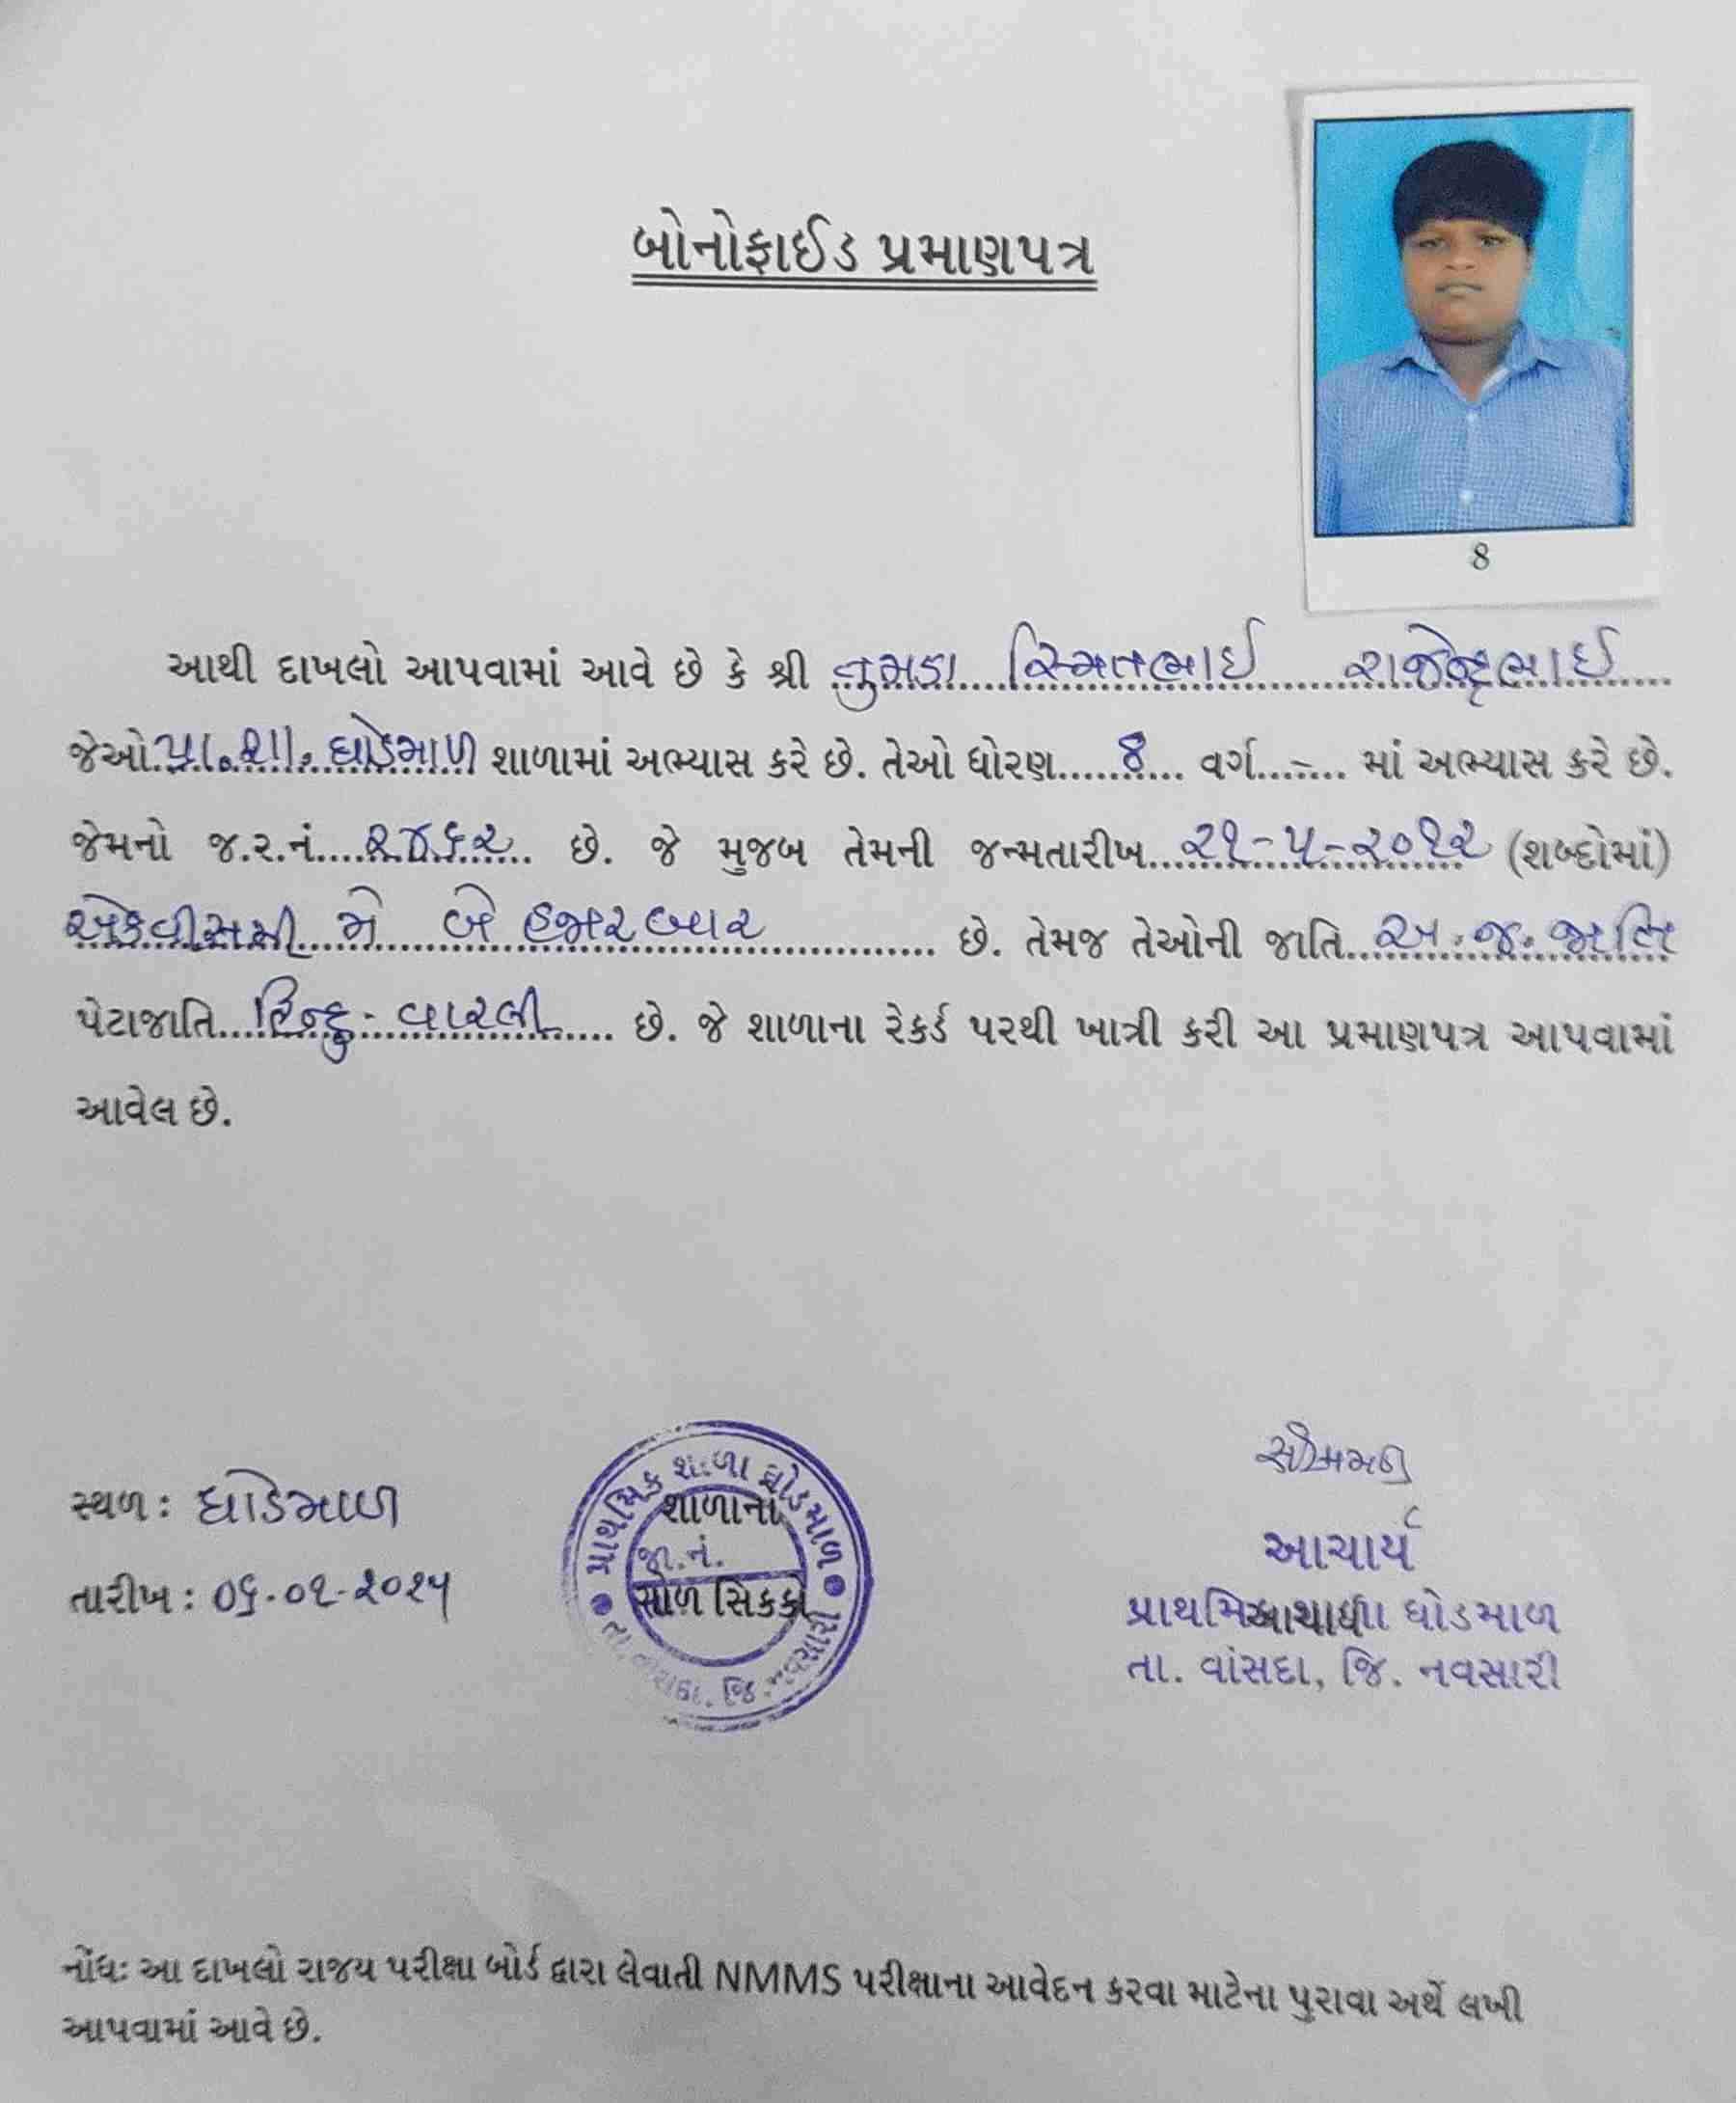 બોનોફાઈડ પ્રમાણપત્ર
8
આથી દાખલો આપવામાં આવે છે કે શ્રી તુમડા સ્મિતભાઈ રાજેન્દ્રભાઈ
જેઓ પ્રા.શા. ઘોડમાળ શાળામાં અભ્યાસ કરે છે. તેઓ ધોરણ 8 વર્ગ - માં અભ્યાસ કરે છે.
જેમનો જ.ર.નં. ૧૪૬૨ છે. જે મુજબ તેમની જન્મતારીખ ૨૧-૫-૨૦૧૨ (શબ્દોમાં)
એકવીસમી મે બે હજાર બાર છે. તેમજ તેઓની જાતિ અ.જ.જાતિ
પેટાજાતિ હિન્દુ-વારલી છે. જે શાળાના રેકર્ડ પરથી ખાત્રી કરી આ પ્રમાણપત્ર આપવામાં
આવેલ છે.
સ્થળ : ઘોડમાળ
તારીખ : ૦૬-૦૧-૨૦૨૫
પ્રાથમિક શાળા ઘોડમાળ
શાળાના
જા.નં.
ગોળ સિક્કો
તા. વાંસદા, જિ. નવસારી
આચાર્ય
પ્રાથમિક શાળા ઘોડમાળ
આચાર્ય
તા. વાંસદા, જિ. નવસારી
નોંધઃ આ દાખલો રાજય પરીક્ષા બોર્ડ દ્વારા લેવાતી NMMS પરીક્ષાના આવેદન કરવા માટેના પુરાવા અર્થે લખી
આપવામાં આવે છે.